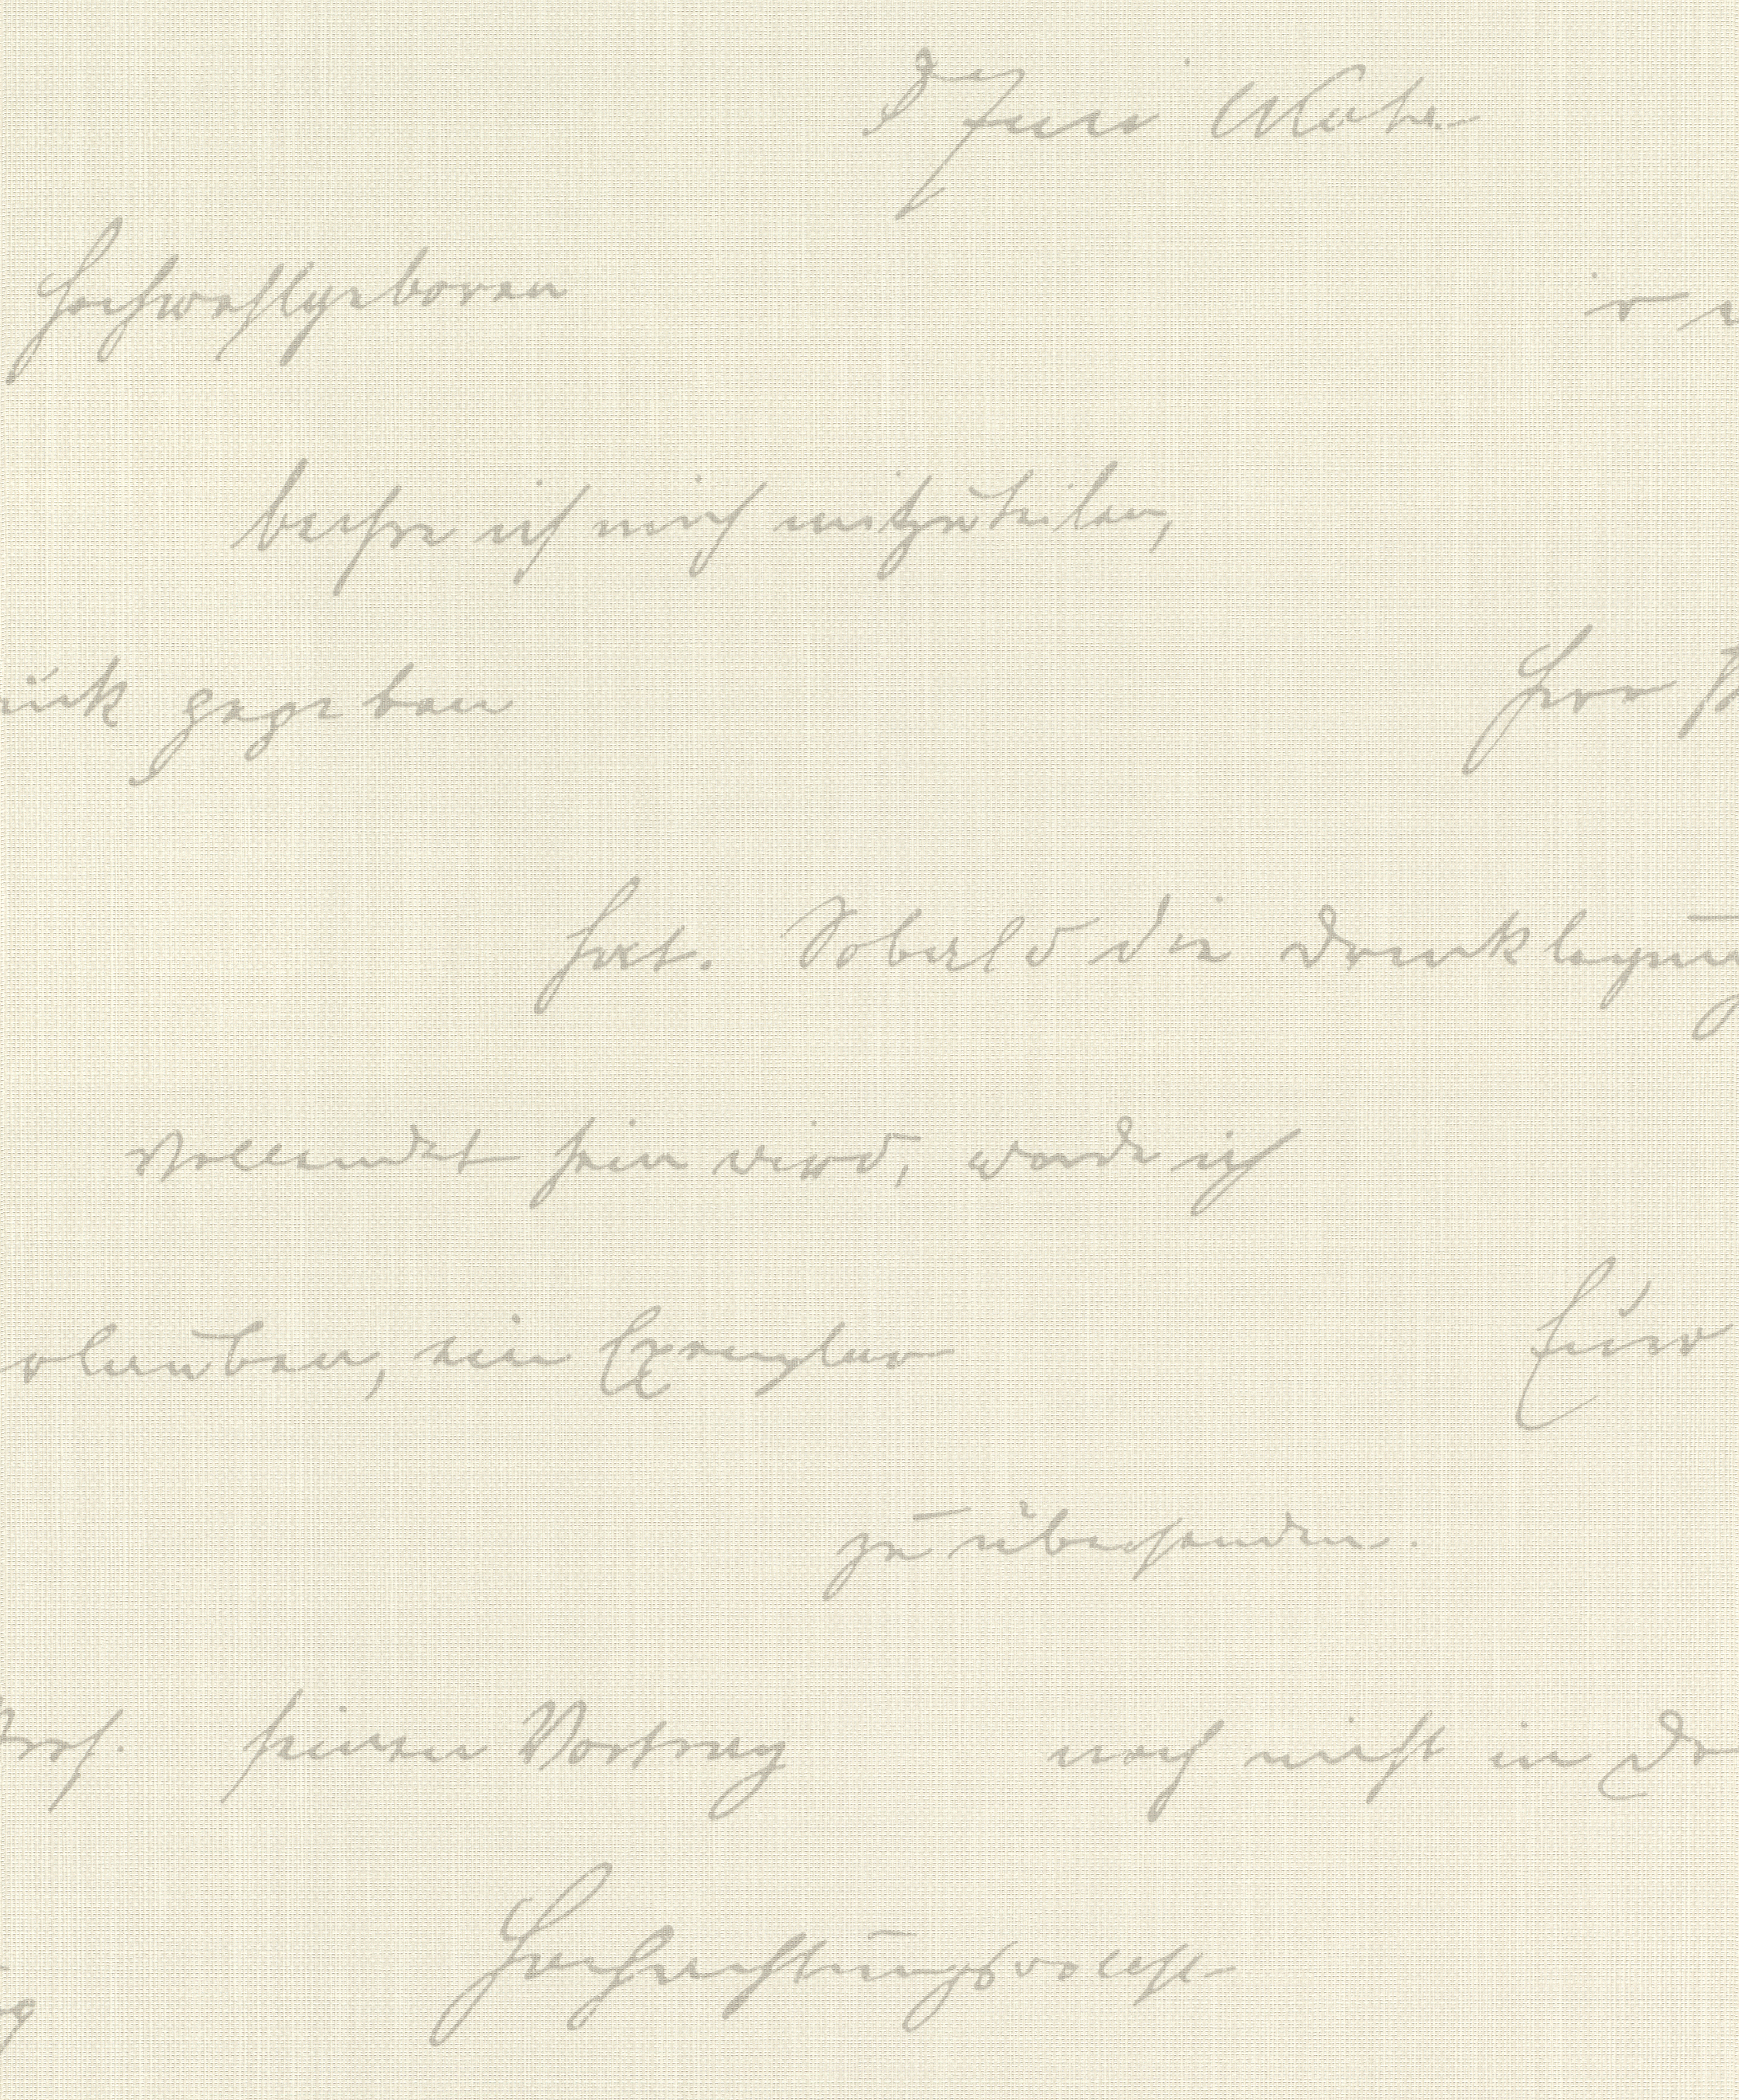 Hochwohlgeboren
beehre ich mich mitzuteilen,
gegeben Herr
hat. Sobald die Drucklegung
vollendet sein wird, werde ich
ein Exemplar Euer
zu übersenden.
Prof. seinen Vortrag noch nicht in
Hochachtungsvollst